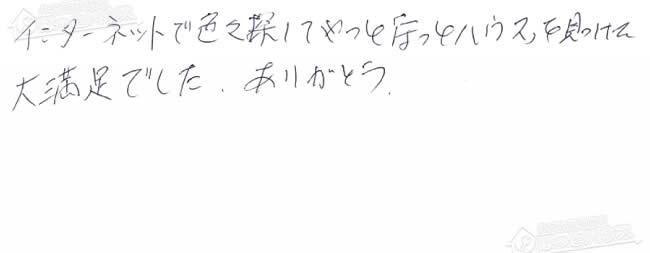 インターネットで色々探してやっとほっとハウスを見つけて
大満足でした。ありがとう。